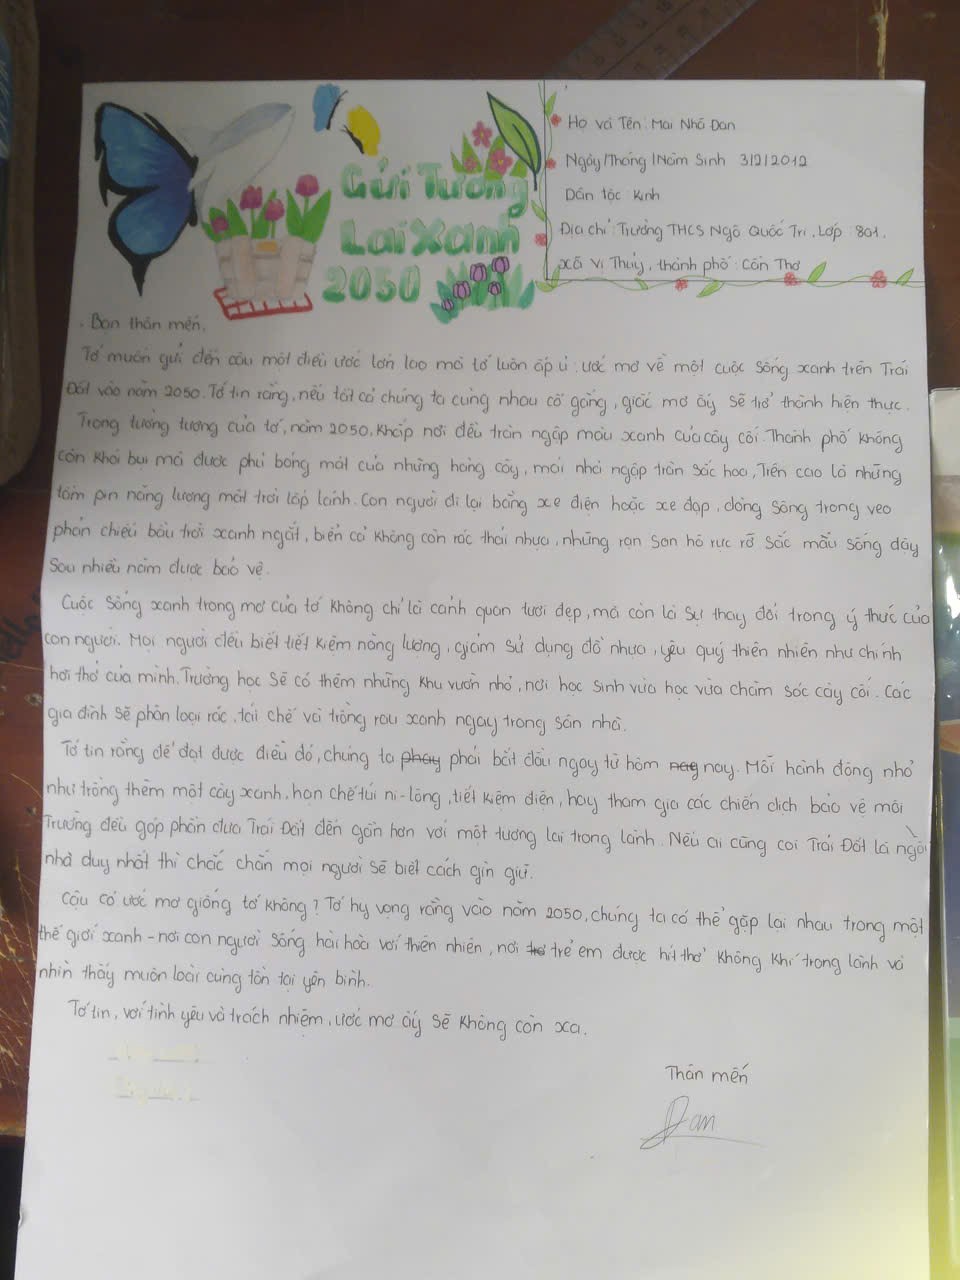 Gửi Tương
Lai Xanh
2050
Họ và Tên: Mai Nhã Đan
Ngày/Tháng/Năm Sinh 3/2/2012
Dân tộc: Kinh
Địa chỉ: Trường THCS Ngô Quốc Trị, Lớp: 8a1.
xã Vị Thủy, thành phố: Cần Thơ
. Bạn thân mến,
Tớ muốn gửi đến cậu một điều ước lớn lao mà tớ luôn ấp ủ: ước mơ về một cuộc sống xanh trên Trái
Đất vào năm 2050. Tớ tin rằng, nếu tất cả chúng ta cùng nhau cố gắng, giấc mơ ấy sẽ trở thành hiện thực.
Trong tưởng tượng của tớ, năm 2050, khắp nơi đều tràn ngập màu xanh của cây cối. Thành phố không
còn khói bụi mà được phủ bóng mát của những hàng cây, mái nhà ngập tràn sắc hoa, Trên cao là những
tấm pin năng lượng mặt trời lấp lánh. Con người đi lại bằng xe điện hoặc xe đạp, dòng sông trong veo
phản chiếu bầu trời xanh ngắt, biển cả không còn rác thải nhựa, những rạn san hô rực rỡ sắc màu sống dậy
sau nhiều năm được bảo vệ.
Cuộc sống xanh trong mơ của tớ không chỉ là cảnh quan tươi đẹp, mà còn là sự thay đổi trong ý thức của
con người. Mọi người đều biết tiết kiệm năng lượng, giảm sử dụng đồ nhựa, yêu quý thiên nhiên như chính
hơi thở của mình. Trường học sẽ có thêm những khu vườn nhỏ, nơi học sinh vừa học vừa chăm sóc cây cối. Các
gia đình sẽ phân loại rác, tái chế và trồng rau xanh ngay trong sân nhà.
Tớ tin rằng để đạt được điều đó, chúng ta phay phải bắt đầu ngay từ hôm nag nay. Mỗi hành động nhỏ
như trồng thêm một cây xanh, hạn chế túi ni-lông, tiết kiệm điện, hay tham gia các chiến dịch bảo vệ môi
Trường đều góp phần đưa Trái Đất đến gần hơn với một tương lai trong lành. Nếu ai cũng coi Trái Đất là ngôi
nhà duy nhất thì chắc chắn mọi người sẽ biết cách gìn giữ.
Cậu có ước mơ giống tớ không? Tớ hy vọng rằng vào năm 2050, chúng ta có thể gặp lại nhau trong một
thế giới xanh - nơi con người sống hài hoà với thiên nhiên, nơi trẻ em được hít thở không khí trong lành và
nhìn thấy muôn loài cùng tồn tại yên bình.
Tớ tin, với tình yêu và trách nhiệm, ước mơ ấy sẽ không còn xa.
Thân mến
Đan